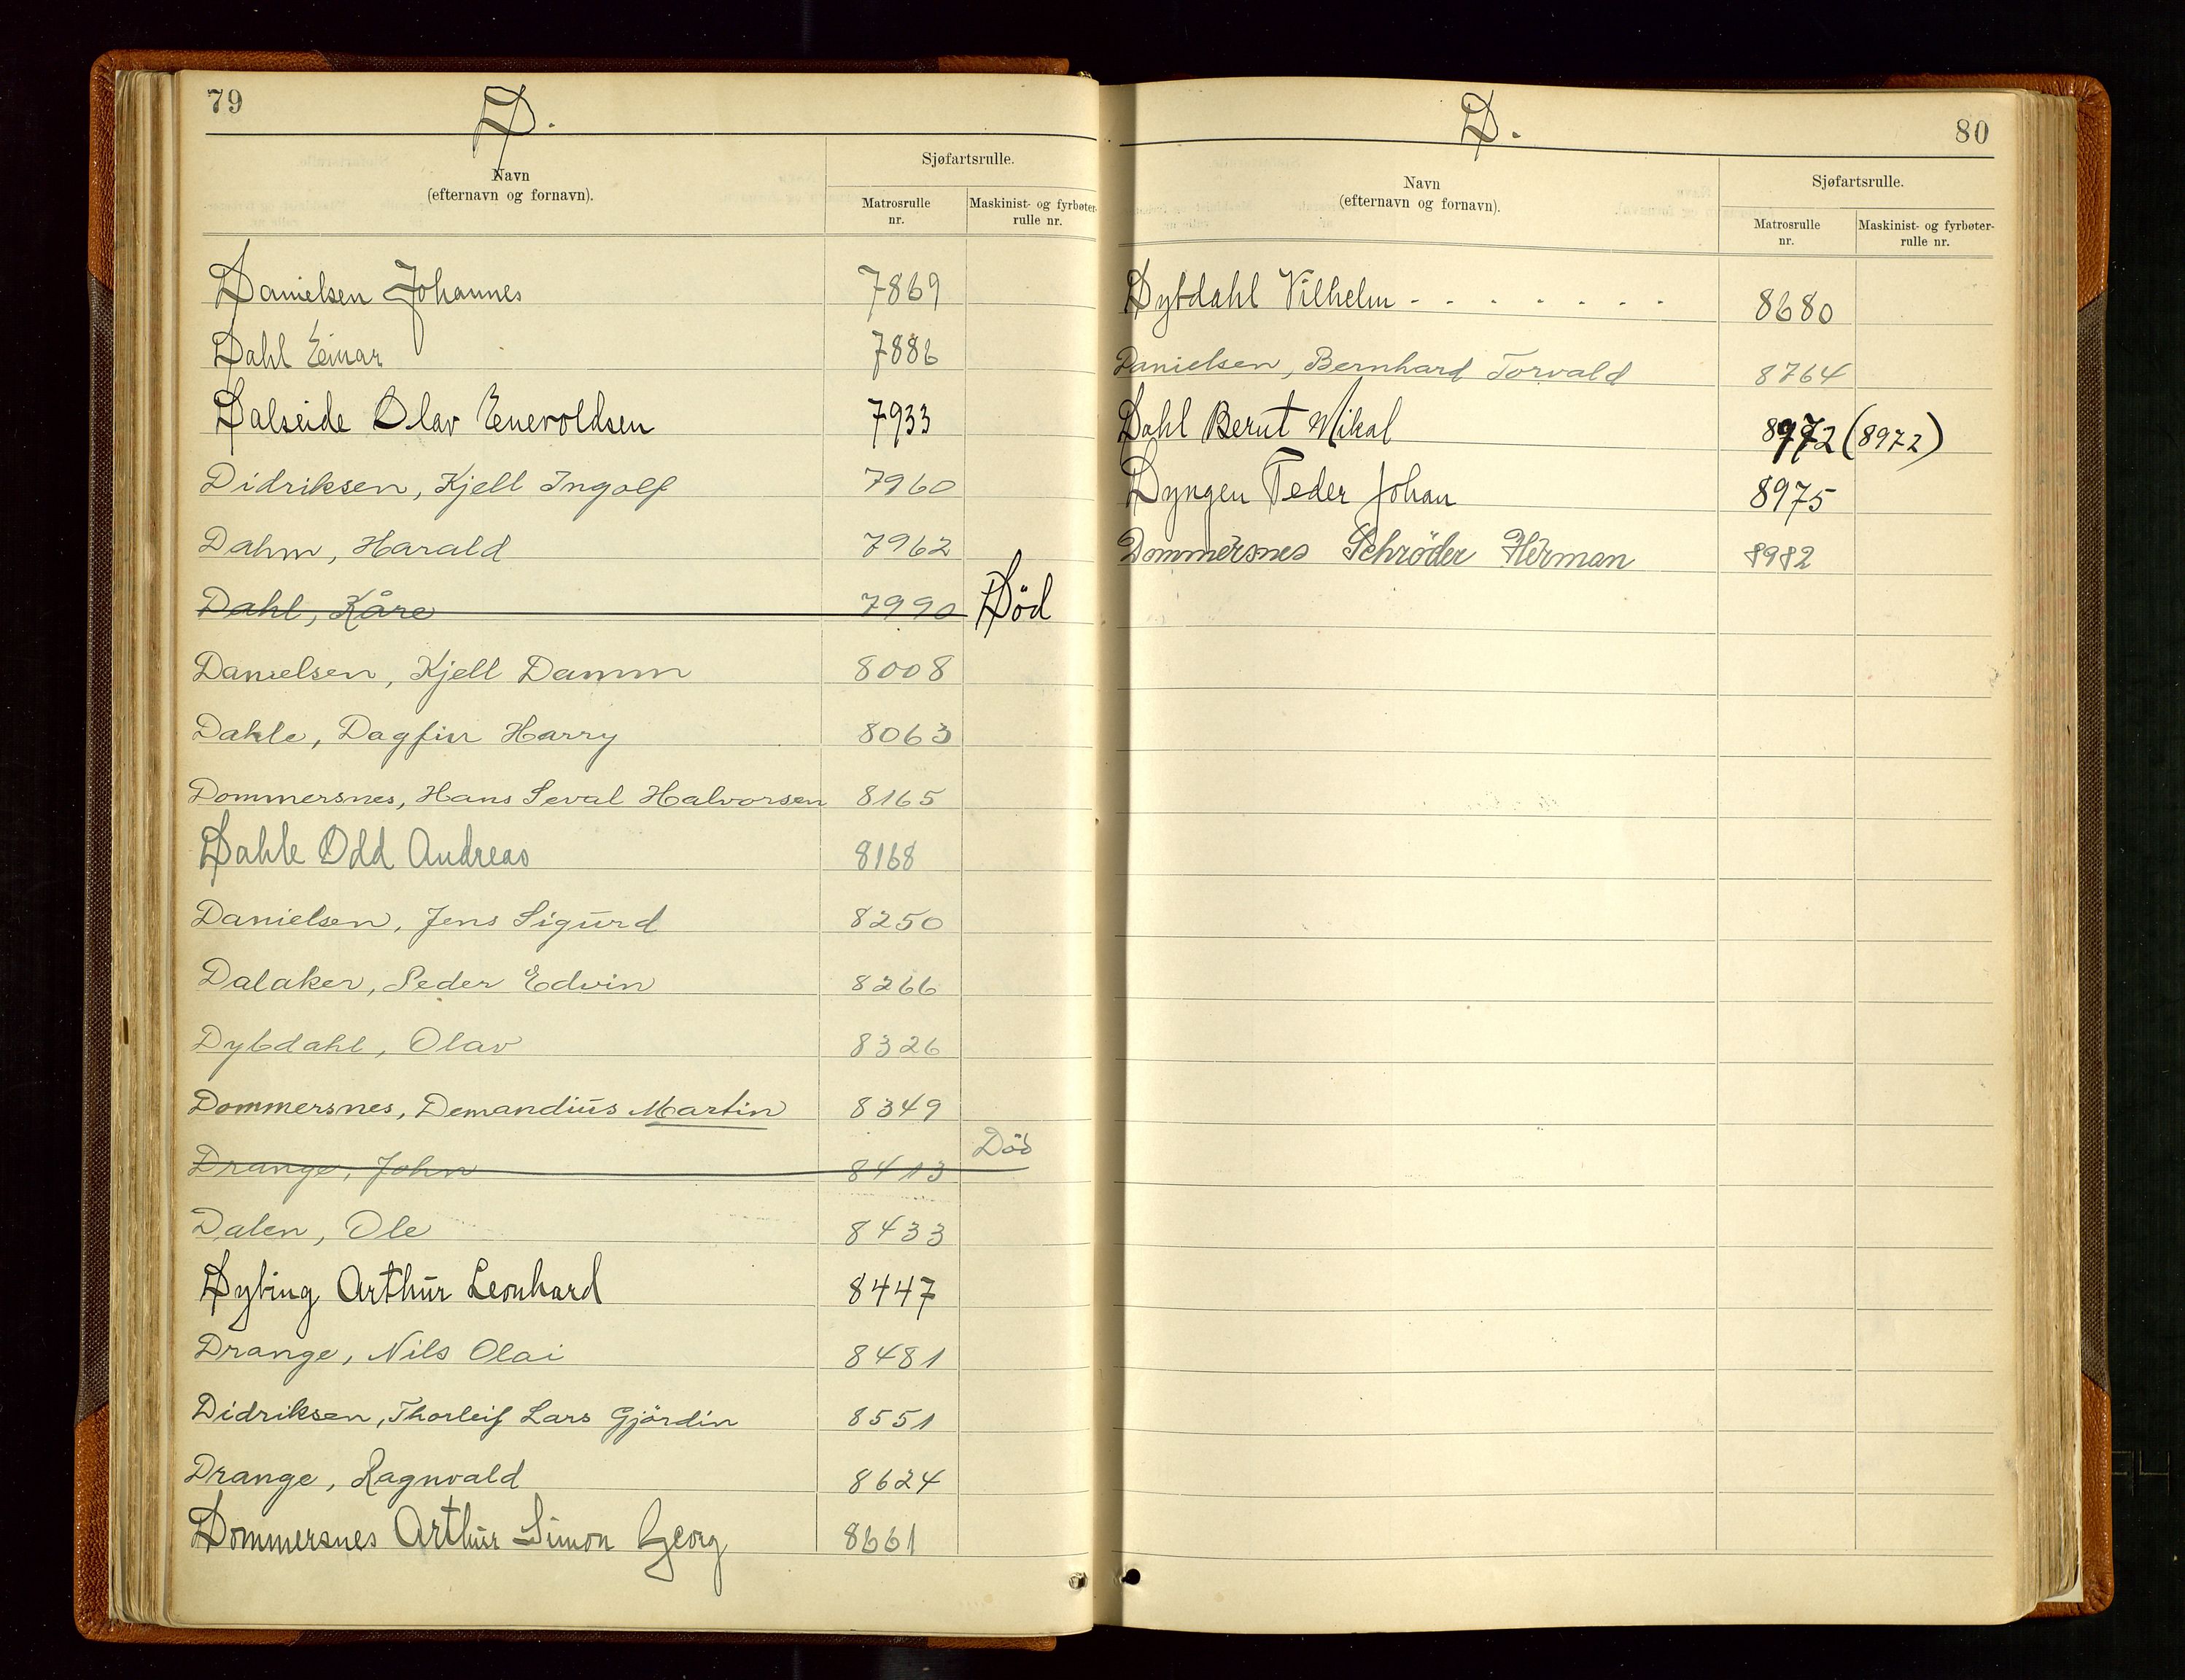 79
D.
Navn
(efternavn og fornavn).
Sjøfartsrulle.
Matrosrulle
nr.
Maskinist- og fyrbøter-
rulle nr.
Danielsen Johannes 7869
Dahl Einar 7886
Dalseide Olav Enevoldsen 7933
Didriksen, Kjell Ingolf 7960
Dahm, Harald 7962
Dahl, Kåre 7990 Död
Danielsen, Kjell Damm 8008
Dahle, Dagfin Harry 8063
Dommersnes, Hans Seval Halvorsen 8165
Dahle Odd Andreas 8168
Danielsen, Jens Sigurd 8250
Dalaker, Peder Edvin 8266
Dybdahl, Olav 8326
Dommersnes, Demandius Martin 8349
Drange, John 8413 Död
Dalen, Ole 8433
Dybing Arthur Leonhard 8447
Drange, Nils Olai 8481
Didriksen, Thorleif Lars Gjördin 8551
Drange, Ragnvald 8624
Dommersnes Arthur Simon Georg 8661
D.
80
Navn
(efternavn og fornavn).
Sjøfartsrulle.
Matrosrulle
nr.
Maskinist- og fyrbøter-
rulle nr.
Dybdahl Vilhelm - - - - - - - 8680
Danielsen, Bernhard Torvald 8764
Dahl Bernt Mikal 8972 (8972)
Dyngen Peder Johan 8975
Dommersnes Schröder Herman 8982